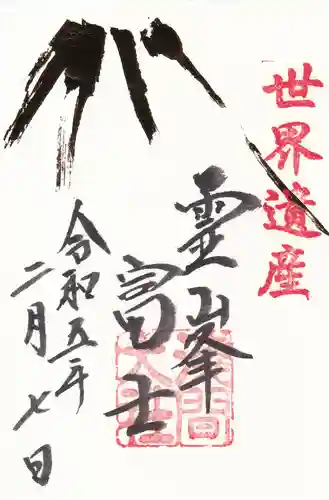 世界遺産
霊峯
富士
浅間大社
令和五年
二月七日